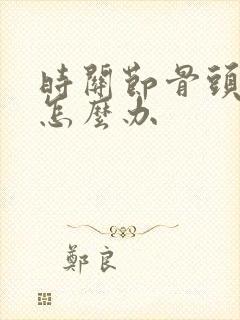 時關節骨頭
怎麼办
鄭良